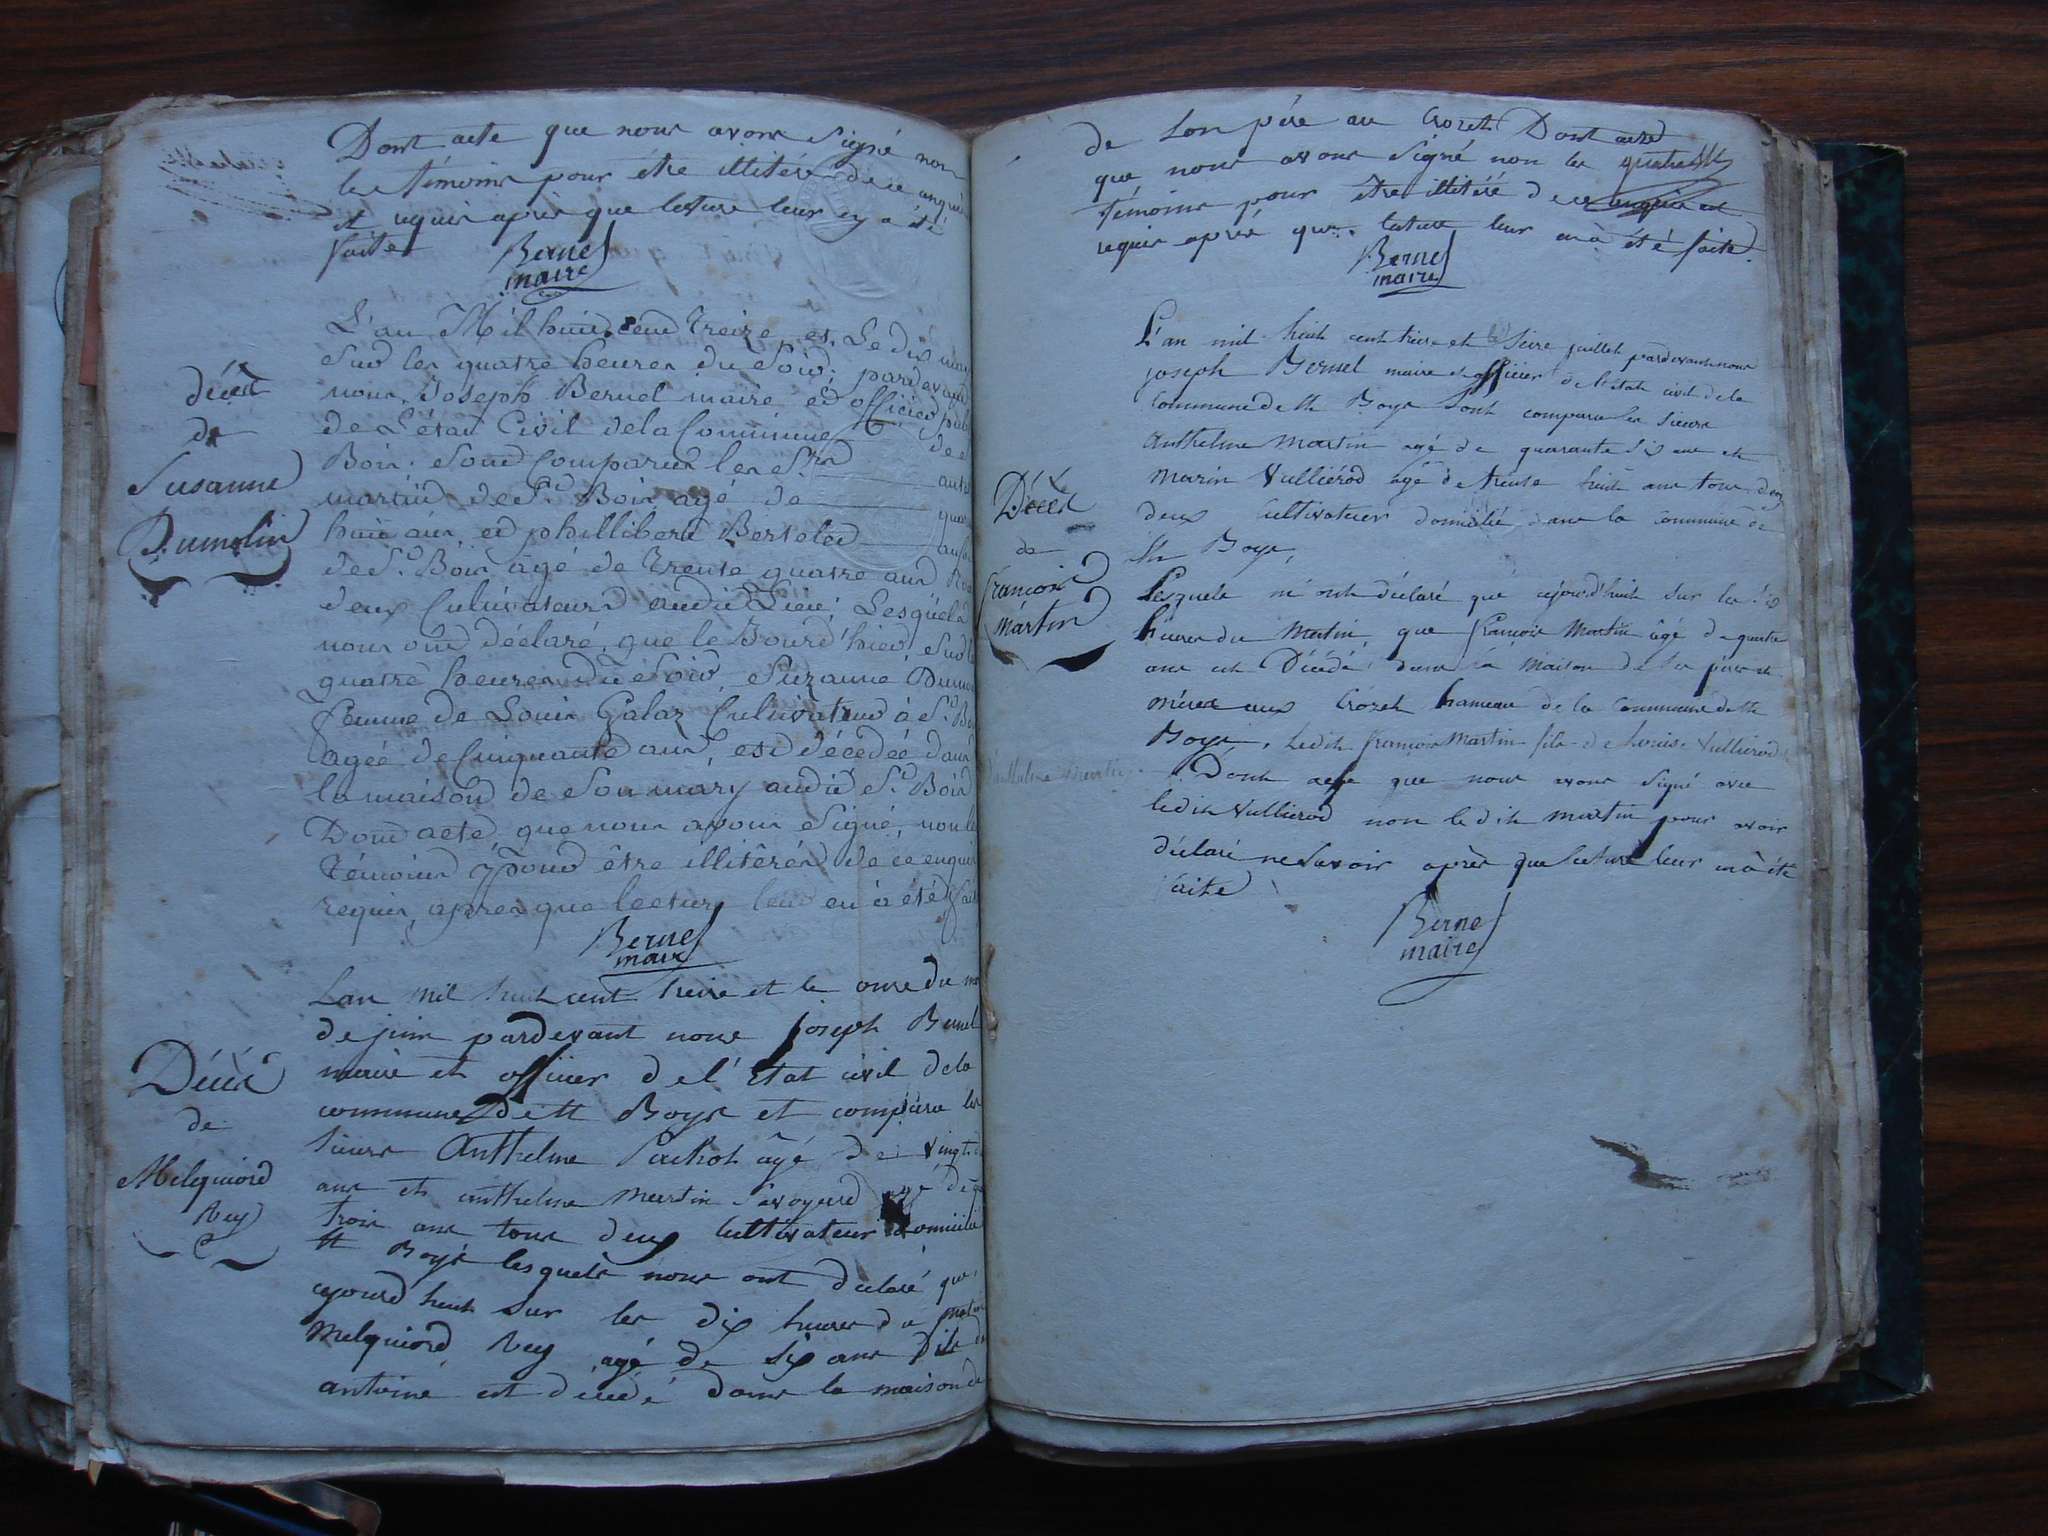 Dont acte que nous avons signé non
les témoins pour être illitéré de ce enquis
et requis après que lecture leur en a été
faite
Bernel
maire
décès
de
Susanne
Dumolin
L'an Mil huit cent treize et Le dix mai
Sur les quatre heures du Soir, pardevant
nous Joseph Bernel maire et officier pub
de L'état Civil de la Commune de S
Bois. Sont Comparus les Srs ant
martin de St Bois agé de qua
huit ans et phillibert Bertelet aussi
de St Bois agé de trente quatre ans
deux Cultivateurs audit Lieu, Lesquels
nous ont déclaré, que le Jourd'hier, Sur l
quatre heures du Soir, Suzanne Dumo
femme de Louis Galaz Cultivateur à St Bo
agée de Cinquante ans, est décédée dans
la maison de Son mary audit St Bois
Dont acte que nous avons Signé, non le
Témoins pour être illitérés de ce enquis
requis, après que lecture leur en à été fait
Bernel
maire
Décès
de
Melquiord
Rey
Lan mil huit cent treize et le onze du mo
de juin pardevant nous joseph Bernel
maire et officier de l'Etat civil de la
commune de St Boys et compara les
sieurs Anthelme Pachot âgé de vingt
ans et anthelme martin Savoyard agé de
trois ans tous deux Cultivateur domicilié
St Boys lesquels nous ont déclaré que
cejourd huit sur les dix heures du matin
Melquiord Rey agé de Six ans fils d
antoine est décédé dans la maison de
de Son père au Crozet Dont acte
que nous avons signé non les quatre
témoins pour être illitéré de ce enquis et
requis après que lecture leur en à été faite.
Bernel
maire
Décès
de
François
martin
L'an mil huit cent treize et le Seize juillet pardevant nous
joseph Bernel maire et officier de l'état civil de la
Commune de St Boys Sont comparu les Sieurs
Anthelme Martin agé de quarante Six ans et
Marin Vulliérod âgé de trente huit ans tous deux
deux Cultivateur domicilié dans la commune de
St Boys,
Lesquels m'ont déclaré que cejourd'huit sur les Six
heures du Matin, que françois Martin âgé de quatre
ans est Décédé dans la Maison de Ses père et
mères aux Crozet hameau de la Commune de St
Boys. Ledit françois Martin fils de Louise Vullierod
d'anthelme martin
Dont acte que nous avons Signé avec
ledit Vullierod non ledit martin pour avoir
déclaré ne Savoir après que lecture leur en à été
faite
Bernel
maire